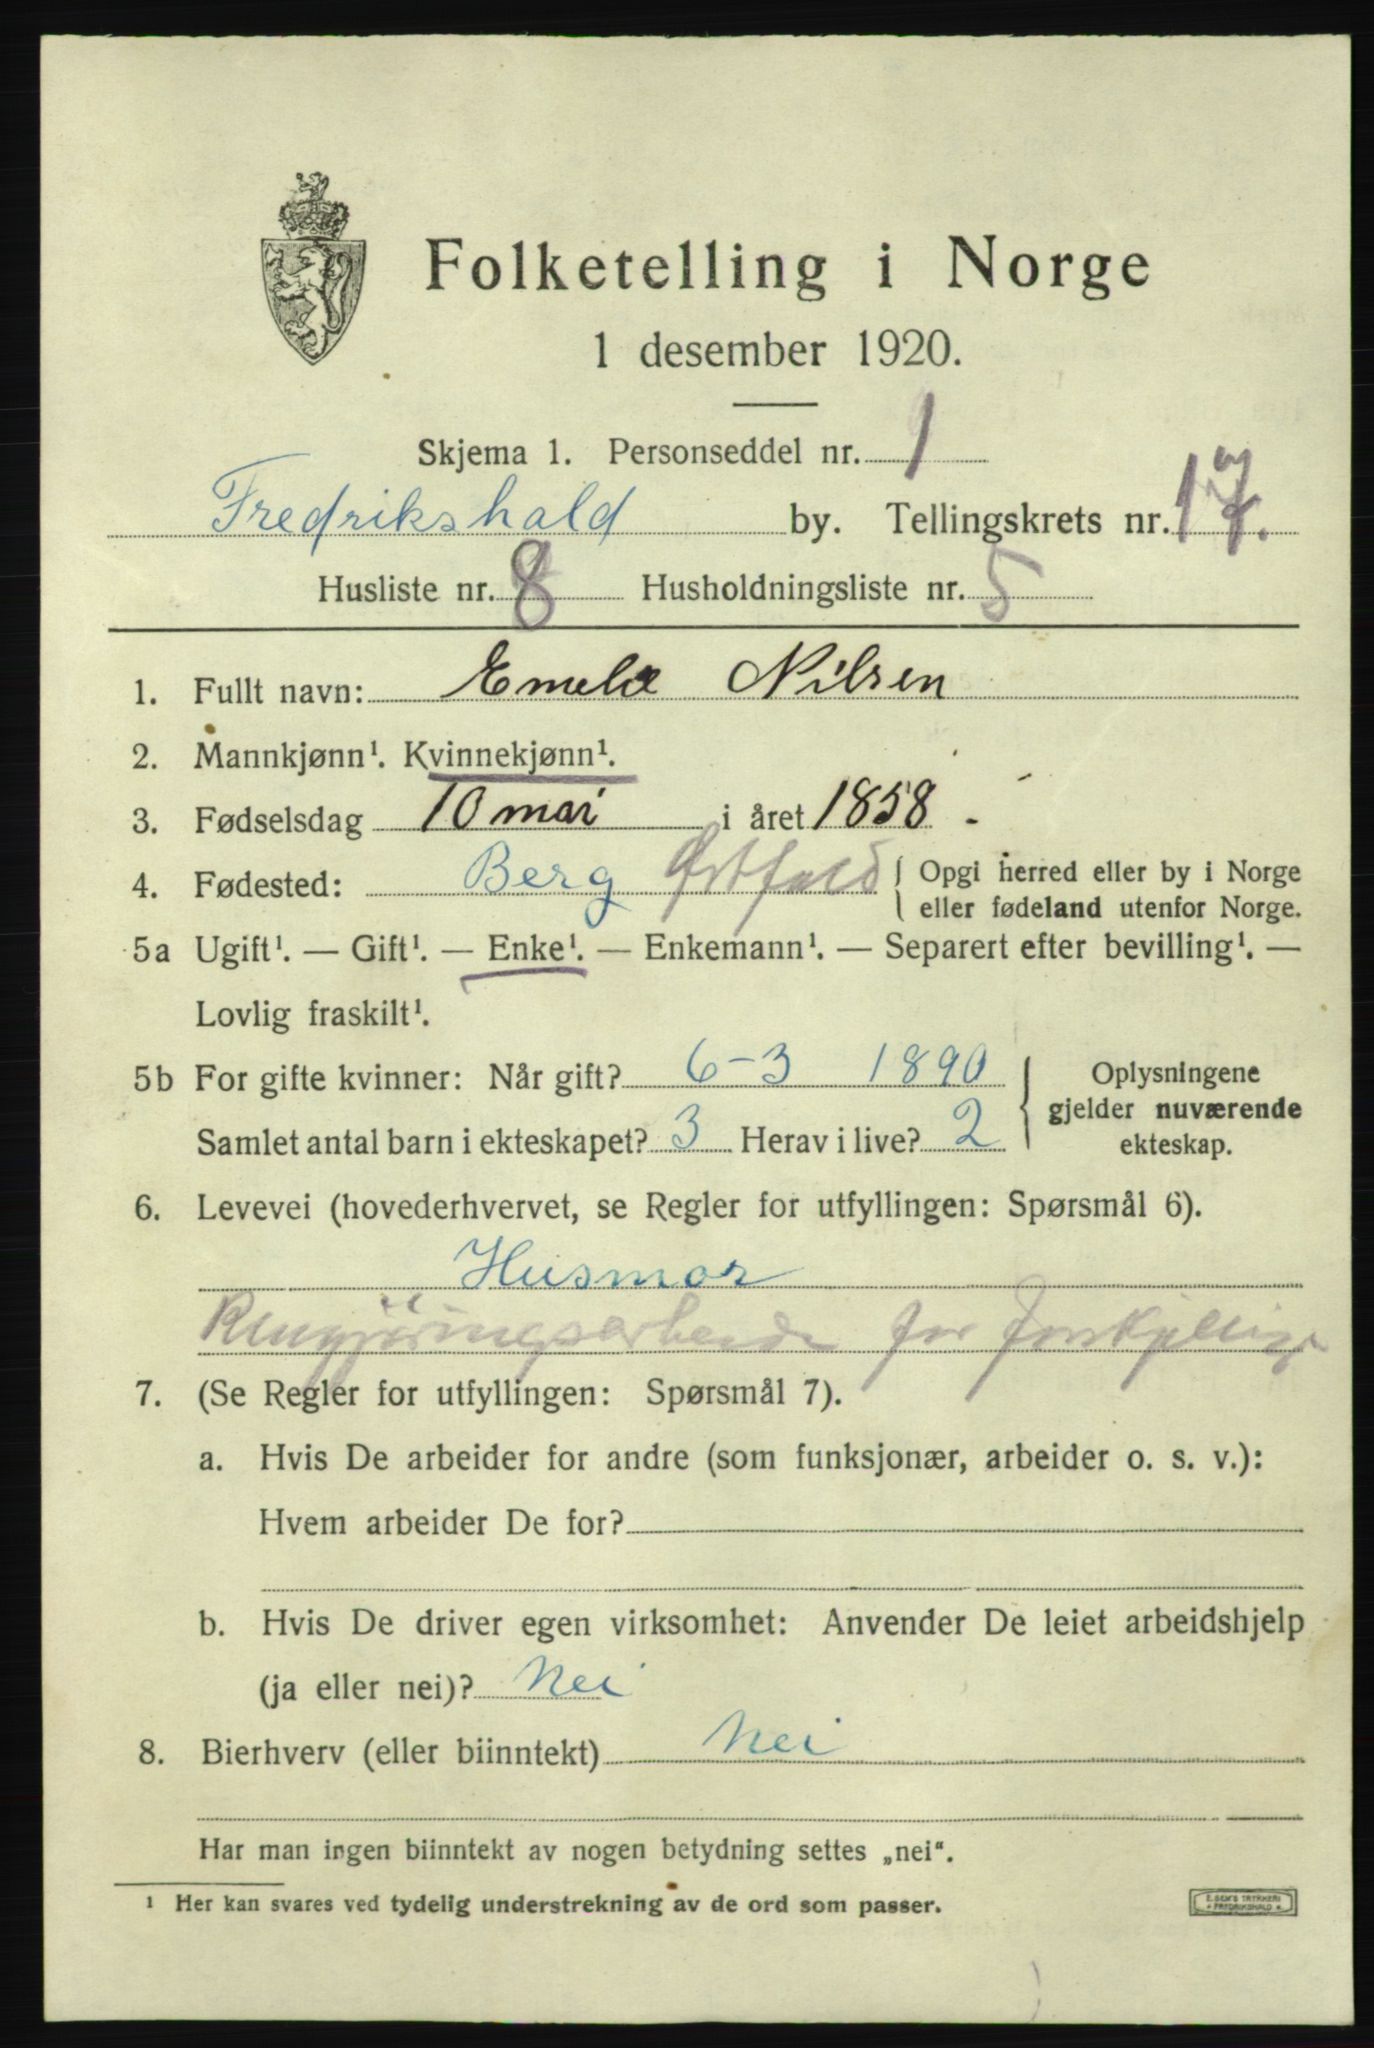 Folketelling i Norge
1 desember 1920.
Skjema 1. Personseddel nr. 1
Fredrikshald by. Tellingskrets nr. 17.
Husliste nr. 8 Husholdningsliste nr. 5
1. Fullt navn: Emelie Nilsen
2. Mannkjønn¹. Kvinnekjønn¹.
3. Fødselsdag 10 mai i året 1858.
4. Fødested: Berg Østfold { Opgi herred eller by i Norge
eller fødeland utenfor Norge.
5a Ugift¹. — Gift¹. — Enke¹. — Enkemann¹. — Separert efter bevilling¹. —
Lovlig fraskilt¹.
5b For gifte kvinner: Når gift? 6-3 1890
Samlet antal barn i ekteskapet? 3 Herav i live? 2
Oplysningene
gjelder nuværende
ekteskap.
6. Levevei (hovederhvervet, se Regler for utfyllingen: Spørsmål 6).
Husmor
Rengjøringsarbeide for forskjellige
7. (Se Regler for utfyllingen: Spørsmål 7).
a. Hvis De arbeider for andre (som funksjonær, arbeider o. s. v.):
Hvem arbeider De for?
b. Hvis De driver egen virksomhet: Anvender De leiet arbeidshjelp
(ja eller nei)? Nei
8. Bierhverv (eller biinntekt) Nei
Har man ingen biinntekt av nogen betydning settes „nei“.
¹ Her kan svares ved tydelig understrekning av de ord som passer.
E. SEM'S TRYKKERI
* FREDRIKSHALD *